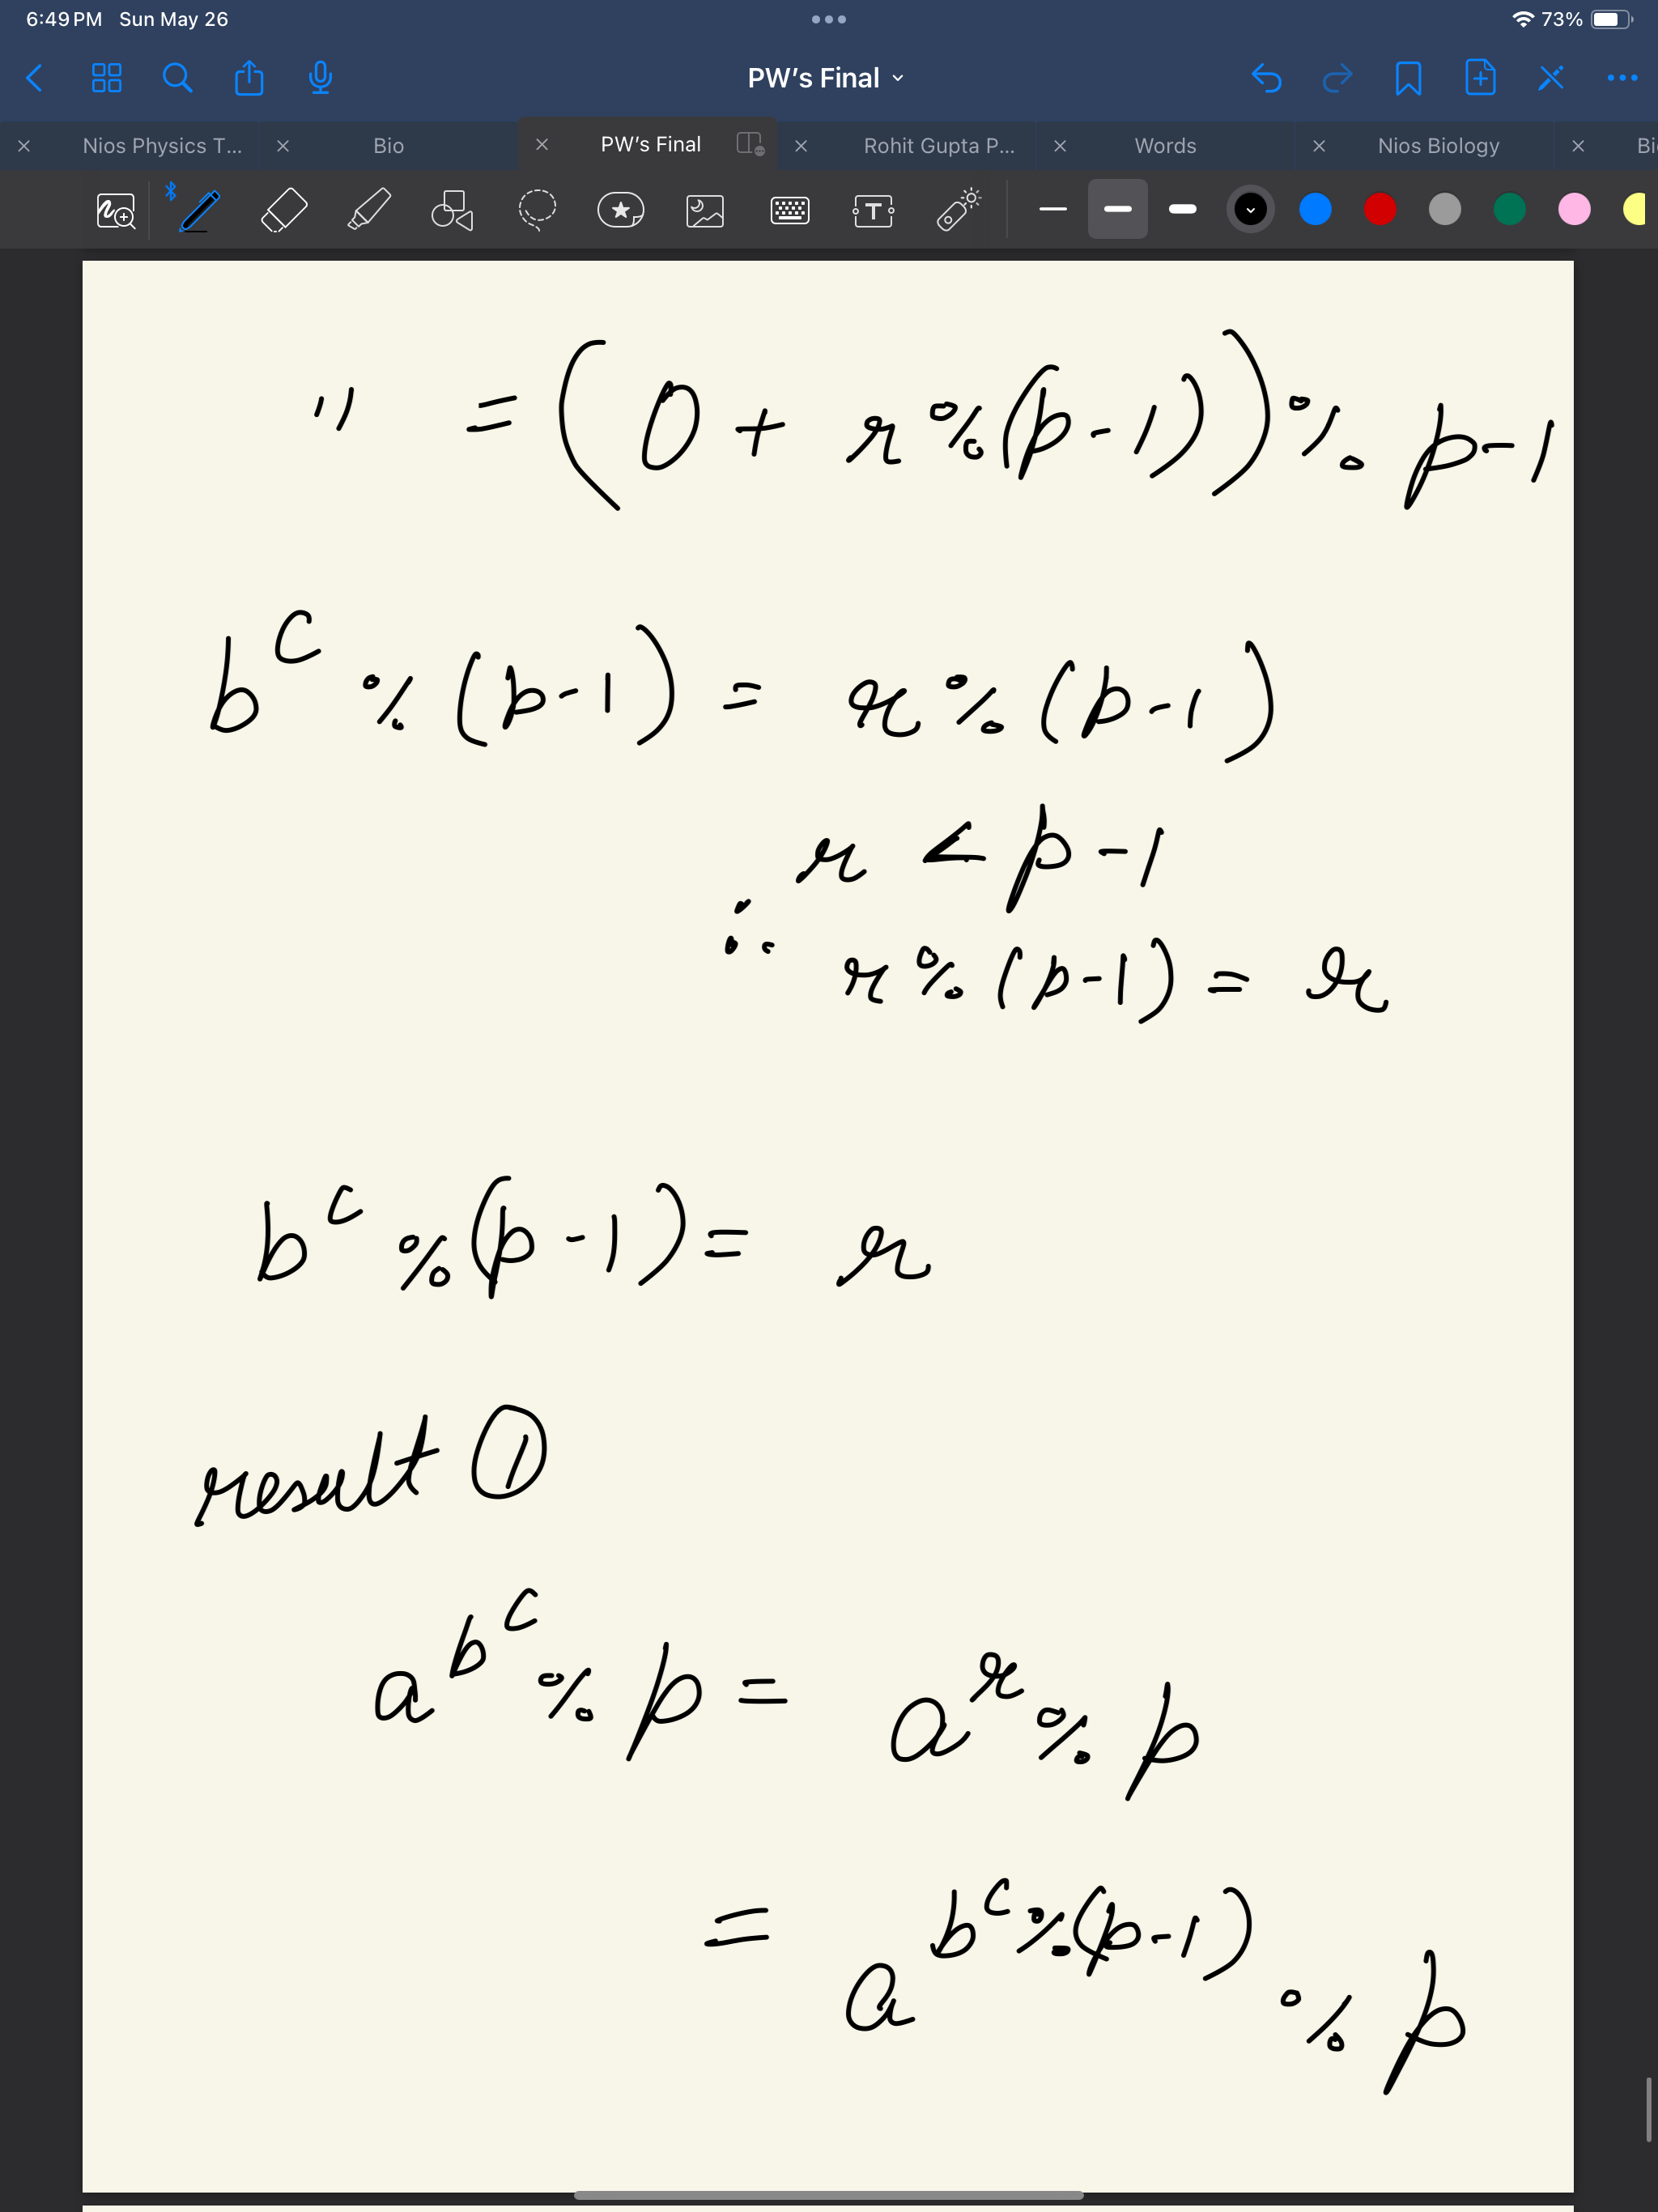 6:49 PM Sun May 26
73%
PW's Final
Nios Physics T...
Bio
PW's Final
Rohit Gupta P...
Words
Nios Biology
Bi
" = (0 + r % (p-1)) % p-1
b^c % (p-1) = r % (p-1)
r < p-1
∴ r % (p-1) = r
b^c % (p-1) = r
result ①
a^b^c % p = a^r % p
= a^b^c%(p-1) % p